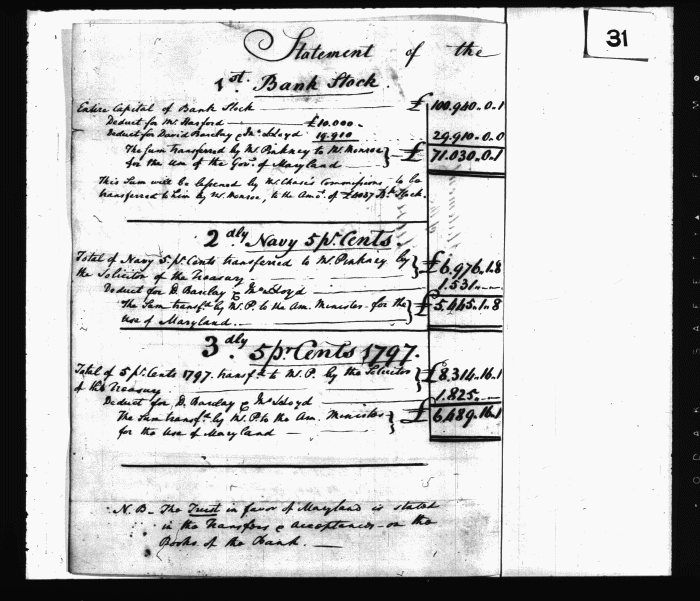 31
Statement of the
1st. Bank Stock.
Entire Capital of Bank Stock £ 100.940..0.1
Deduct for Mr. Harford £10.000.-
Deduct for David Barclay & Jno. Lloyd 19.910 29.910..0.0
The Sum transferred by Mr. Pinkney to Mr. Monroe } £ 71.030..0.1
for the Use of the Govt. of Maryland
This Sum will be lessened by Mr. Chase's Commissions, to be
transferred to him by Mr. Monroe, to the Amt. of Bk. Stock.
2dly Navy 5 pr. Cents.
Total of Navy 5 pr. Cents transferred to Mr. Pinkney by } £6.976..1.8
the Solicitor of the Treasury
Deduct for D. Barclay & Jno. Lloyd 1.531
The Sum transfd. by Mr. P. to the Am. Minister for the } £5.445..1..8
Use of Maryland
3dly 5 pr Cents 1797.
Total of 5 pr. Cents 1797. transfd. to Mr. P. by the Solicitor } £8.314..16.1
of the Treasury
Deduct for D. Barclay & Jno. Lloyd 1.825
The Sum transfd. by Mr. P. to the Am. Minister } £ 6.489..16.1
for the Use of Maryland
N.B. The Trust in favor of Maryland is stated
in the Transfers & Acceptances on the
Books of the Bank.